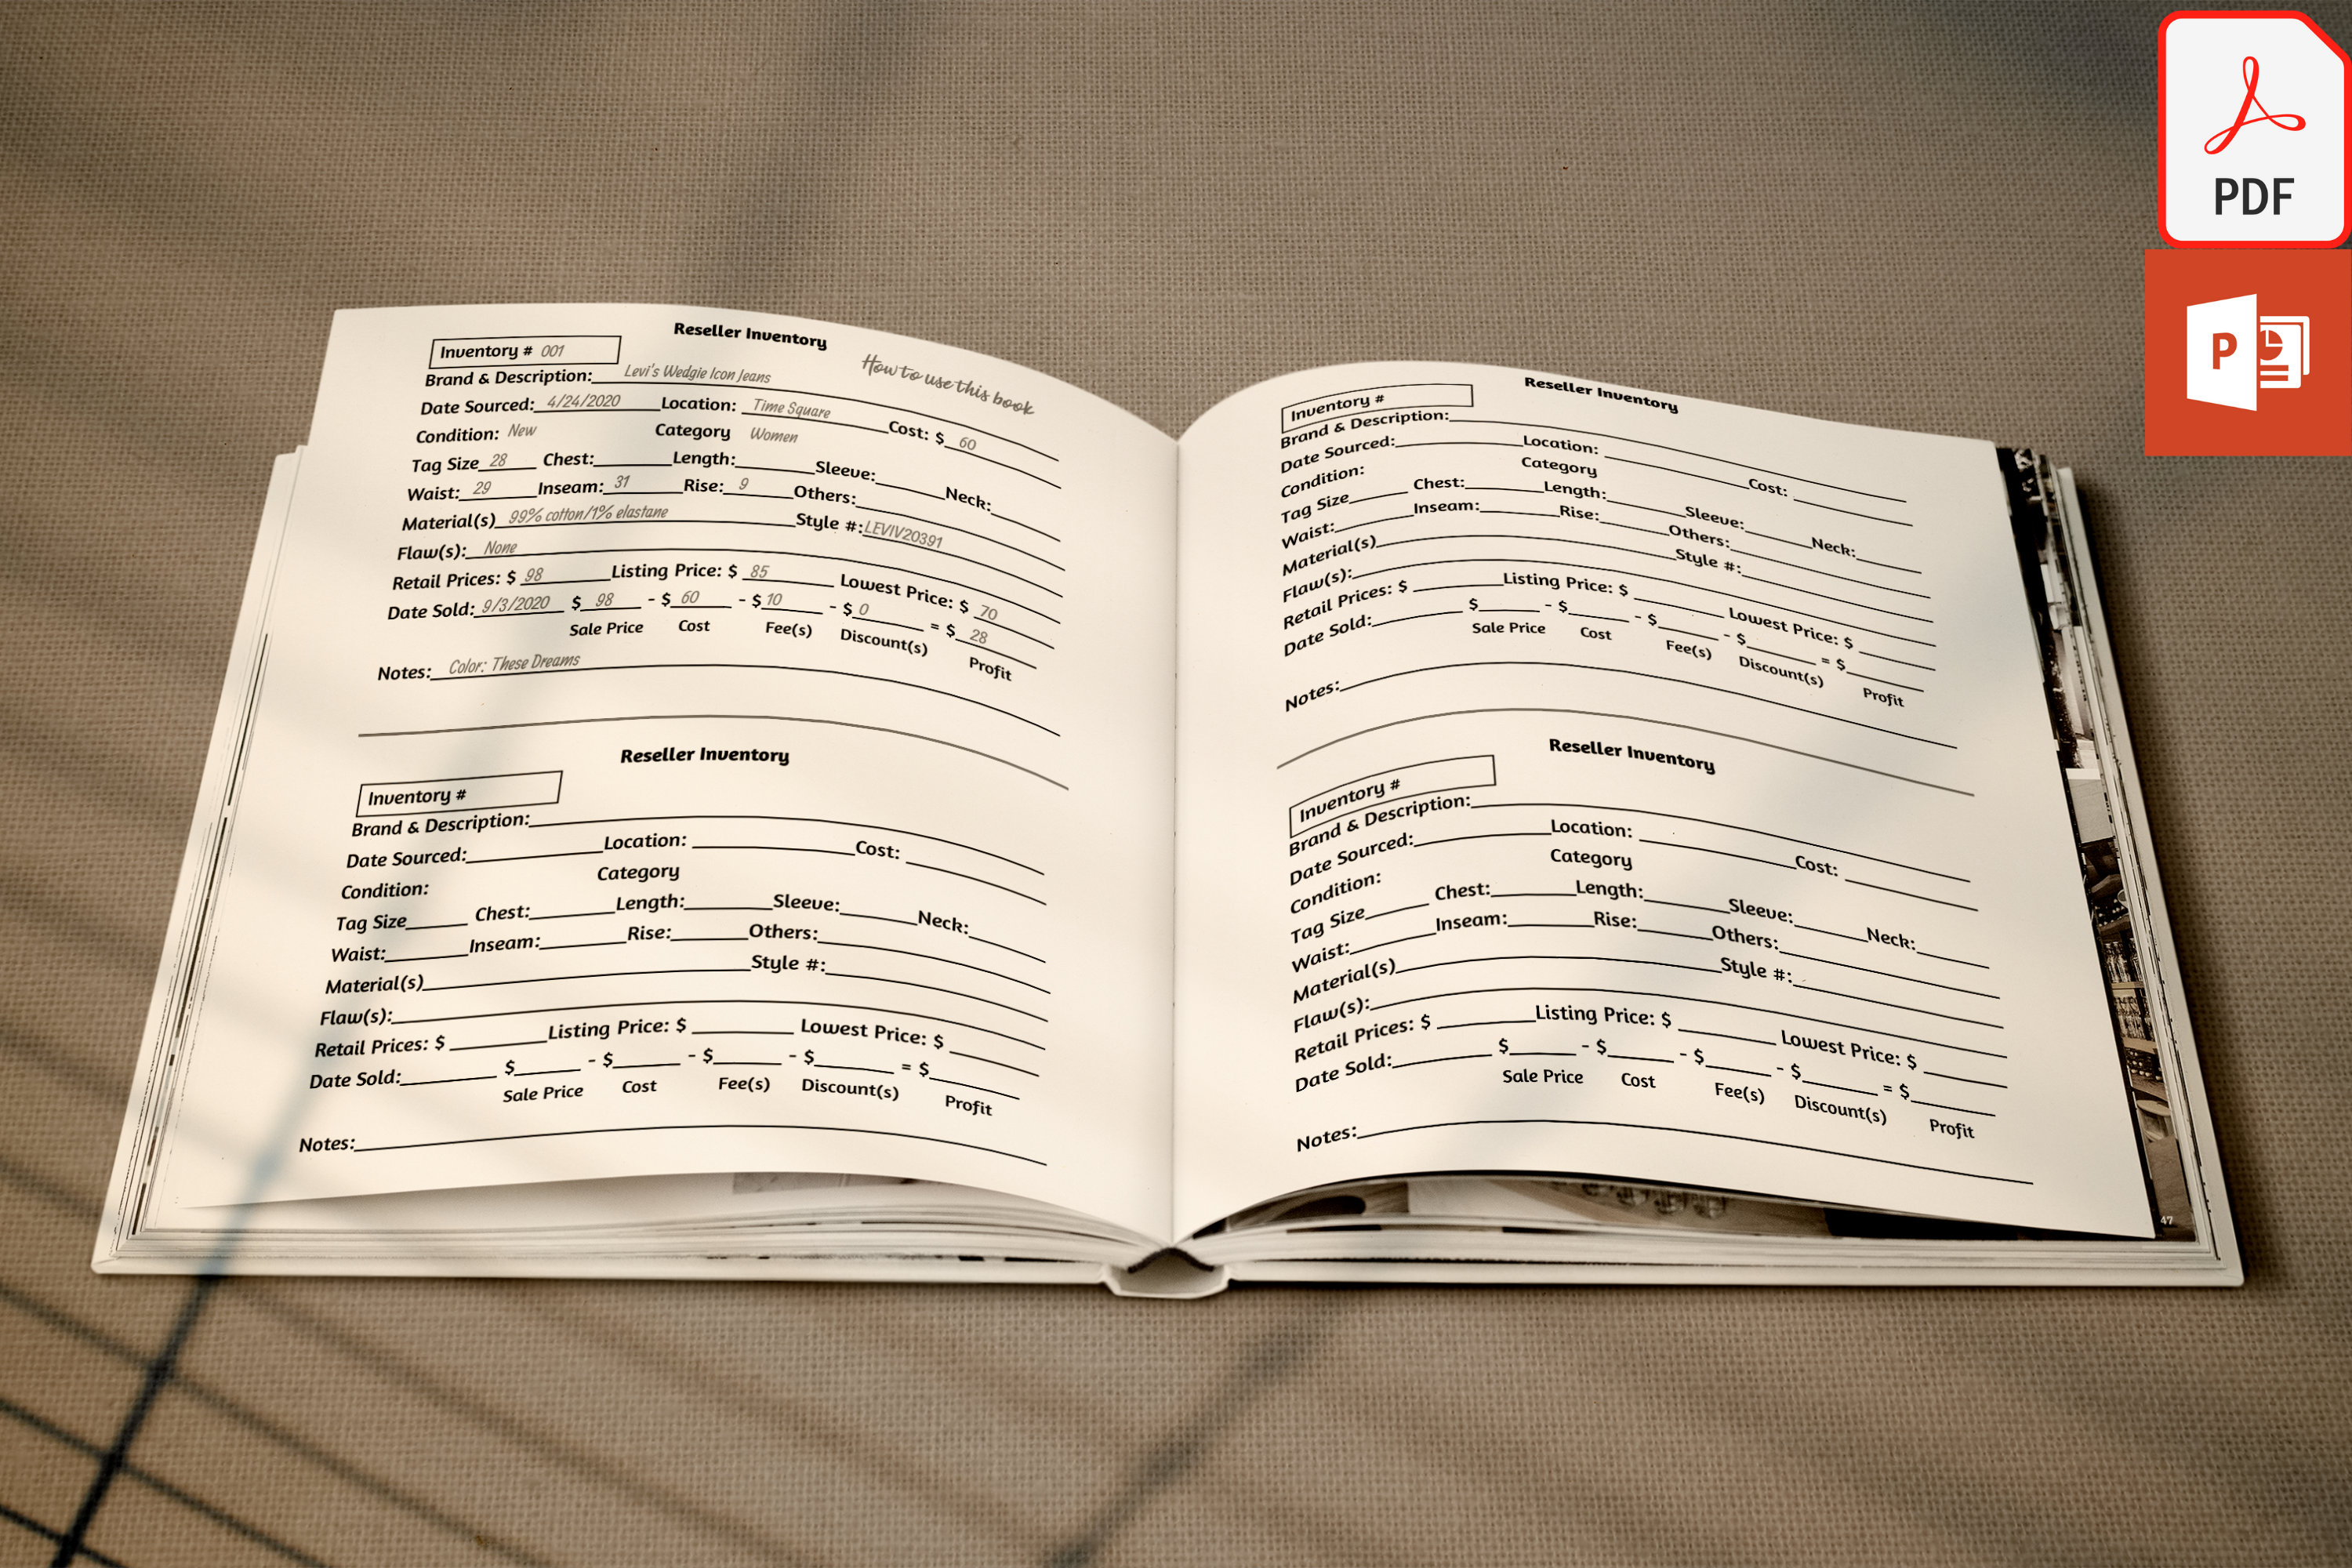 PDF
P
Reseller Inventory
Inventory # 001
How to use this book
Brand & Description: Levi's Wedgie Icon Jeans
Date Sourced: 4/24/2020 Location: Time Square Cost: $ 60
Condition: New Category Women
Tag Size 28 Chest: Length: Sleeve: Neck:
Waist: 29 Inseam: 31 Rise: 9 Others:
Material(s) 99% cotton/1% elastane Style #: LEVIV20391
Flaw(s): None
Retail Prices: $ 98 Listing Price: $ 85 Lowest Price: $ 70
Date Sold: 9/3/2020 $ 98 - $ 60 - $ 10 - $ 0 = $ 28
Sale Price Cost Fee(s) Discount(s) Profit
Notes: Color: These Dreams
Reseller Inventory
Inventory #
Brand & Description:
Date Sourced: Location: Cost:
Condition: Category
Tag Size Chest: Length: Sleeve: Neck:
Waist: Inseam: Rise: Others:
Material(s) Style #:
Flaw(s):
Retail Prices: $ Listing Price: $ Lowest Price: $
Date Sold: $ - $ - $ - $ = $
Sale Price Cost Fee(s) Discount(s) Profit
Notes:
Reseller Inventory
Inventory #
Brand & Description:
Date Sourced: Location: Cost:
Condition: Category
Tag Size Chest: Length: Sleeve: Neck:
Waist: Inseam: Rise: Others:
Material(s) Style #:
Flaw(s):
Retail Prices: $ Listing Price: $ Lowest Price: $
Date Sold: $ - $ - $ - $ = $
Sale Price Cost Fee(s) Discount(s) Profit
Notes:
Reseller Inventory
Inventory #
Brand & Description:
Date Sourced: Location: Cost:
Condition: Category
Tag Size Chest: Length: Sleeve: Neck:
Waist: Inseam: Rise: Others:
Material(s) Style #:
Flaw(s):
Retail Prices: $ Listing Price: $ Lowest Price: $
Date Sold: $ - $ - $ - $ = $
Sale Price Cost Fee(s) Discount(s) Profit
Notes:
47